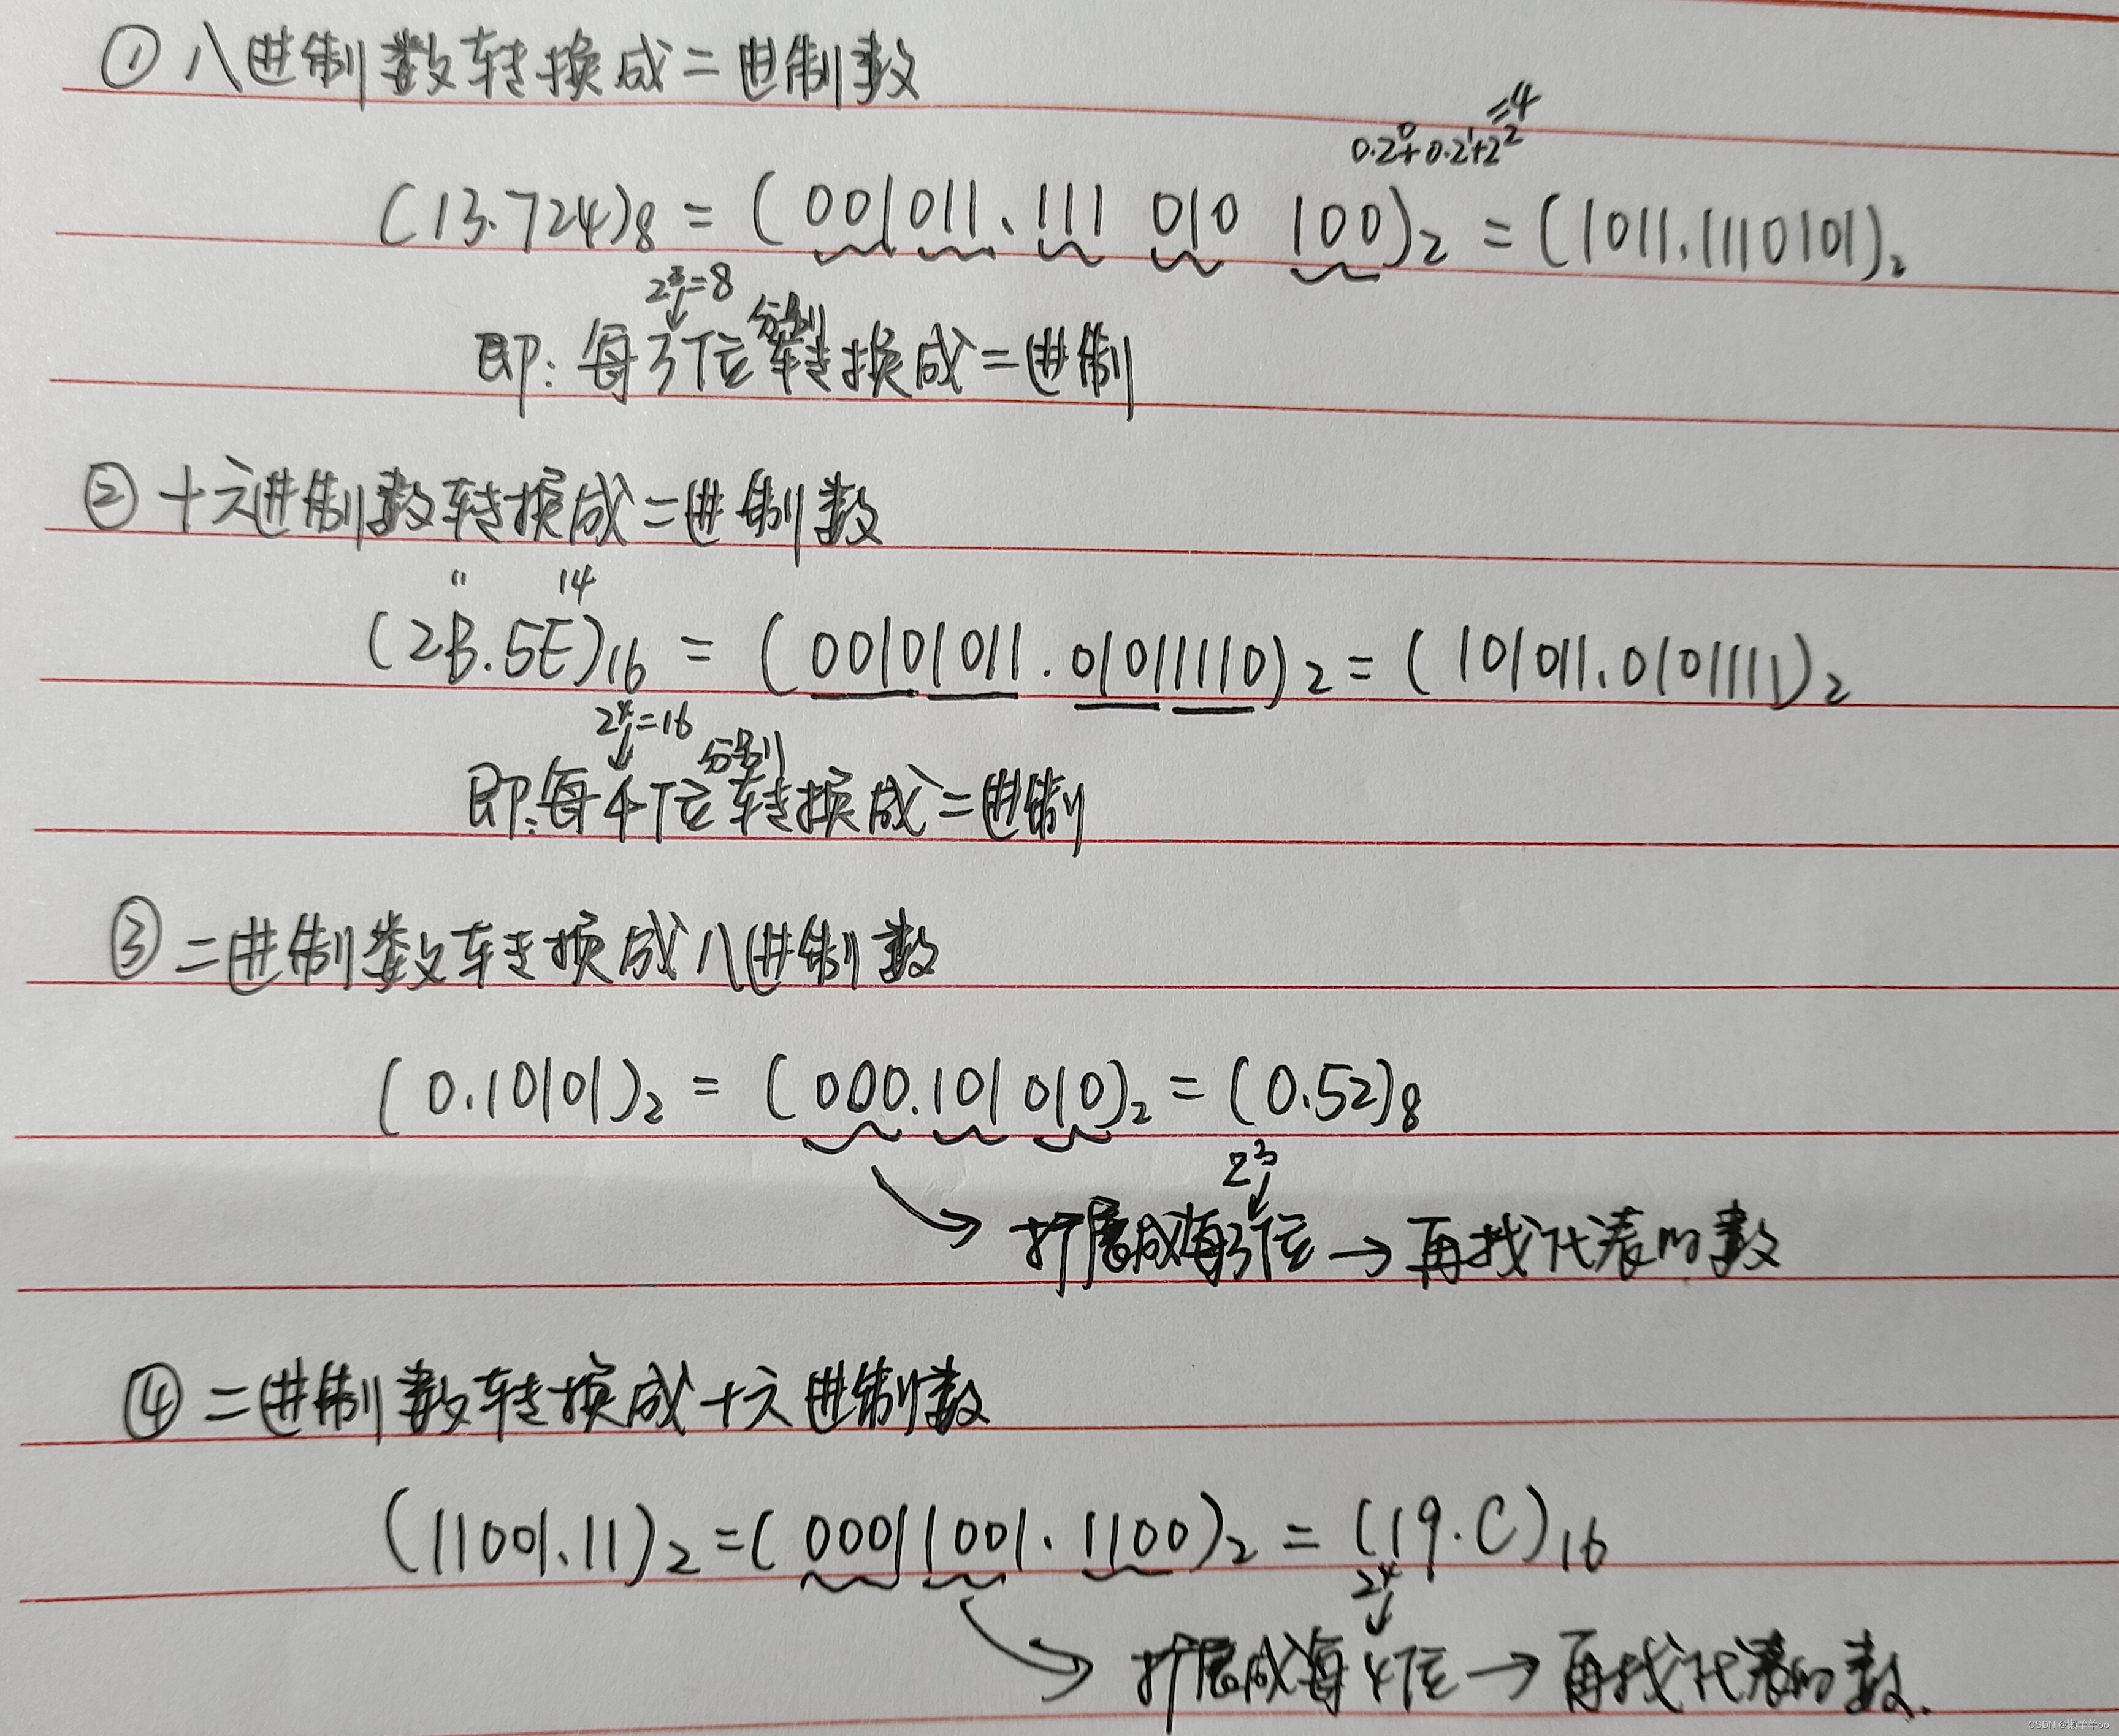 ① 八进制数转换成二进制数
=4
0·2⁰+0·2¹+2²
(13.724)₈ = (001011.111 010 100)₂ = (1011.1110101)₂
2³=8
分别
即:每3位转换成二进制
② 十六进制数转换成二进制数
11 14
(2B.5E)₁₆ = (00101011.01011110)₂ = (101011.0101111)₂
2⁴=16
分别
即:每4位转换成二进制
③ 二进制数转换成八进制数
(0.10101)₂ = (000.101 010)₂ = (0.52)₈
2³
扩展成每3位→再找代表的数
④ 二进制数转换成十六进制数
(11001.11)₂=(00011001.1100)₂ = (19.C)₁₆
2⁴
扩展成每4位→再找代表的数.
CSDN @懒羊羊oo